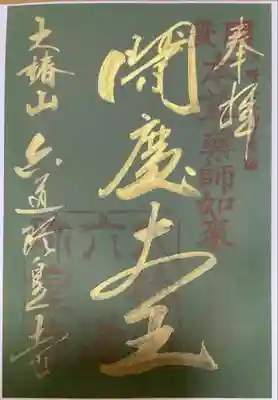 奉拝
閻魔大王
大椿山 六道珍皇寺
薬師如来